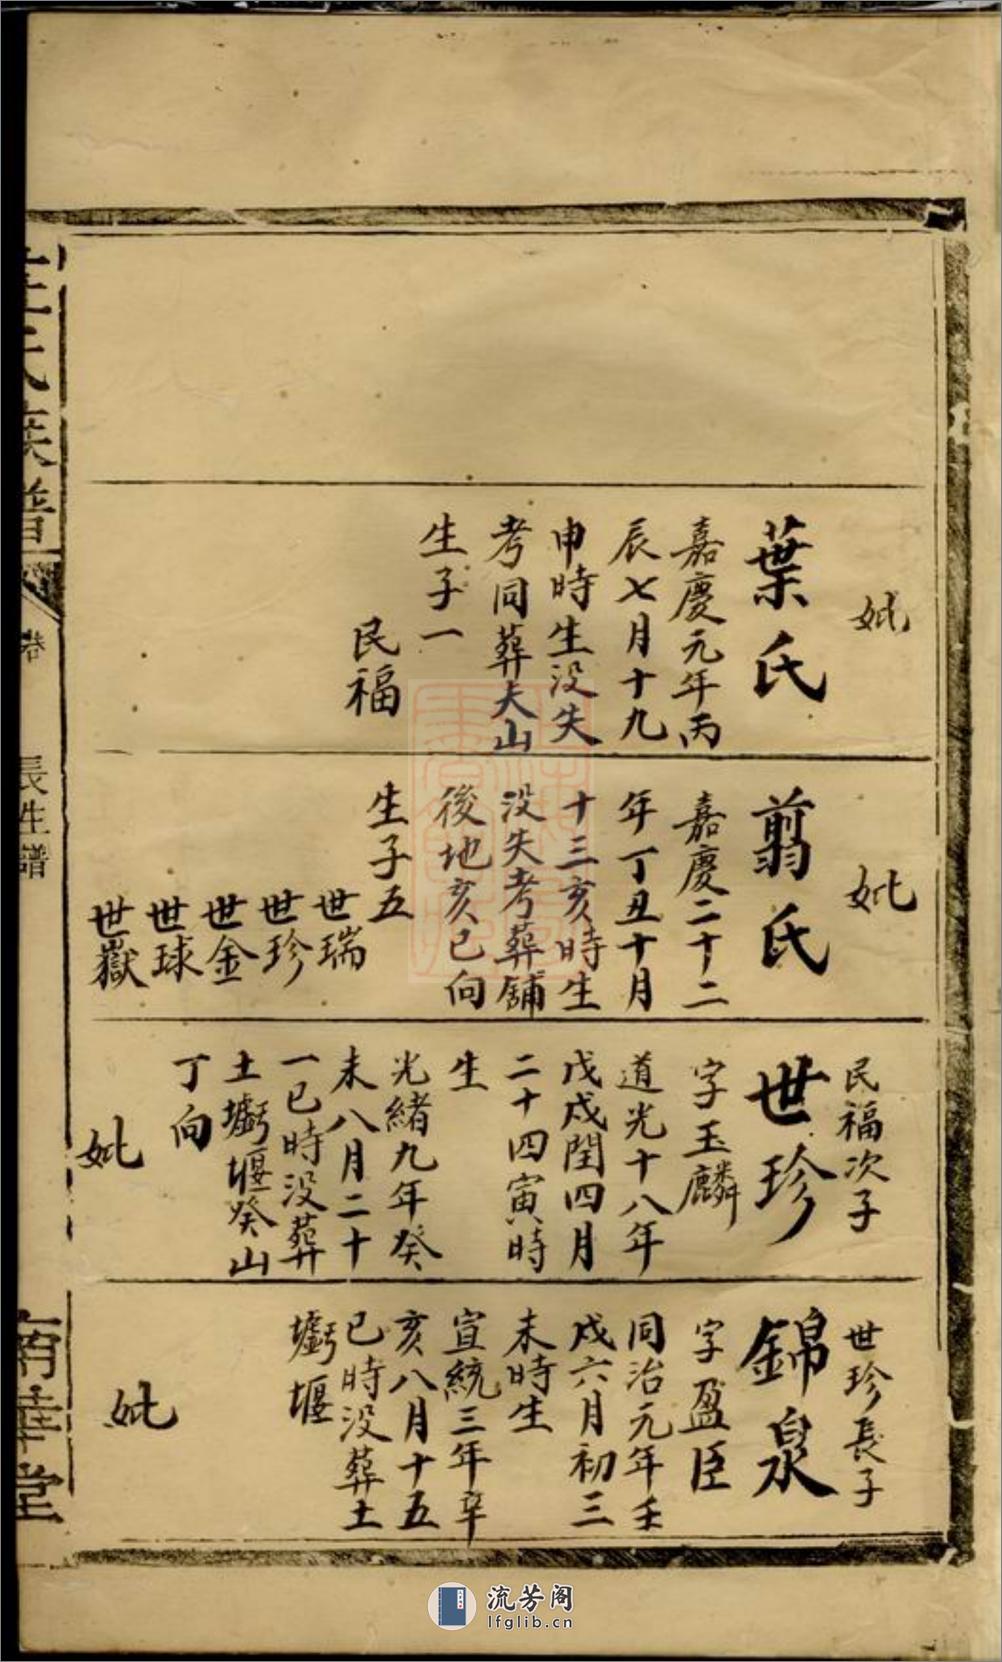 妣
葉氏
嘉慶元年丙
辰七月十九
申時生没失
考同葬大山
生子一
民福
妣
翦氏
嘉慶二十二
年丁丑十月
十三亥時生
没失考葬舖
後地亥巳向
生子五
世瑞
世珍
世金
世球
世嶽
民福次子
世珍
字玉麟
道光十八年
戊戌閏四月
二十四寅時
生
光緒九年癸
未八月二十
一巳時没葬
土壪堰癸山
丁向
妣
世珍長子
錦泉
字盈臣
同治元年壬
戌六月初三
未時生
宣統三年辛
亥八月十五
巳時没葬土
壪堰
妣
氏族譜
卷
長生譜
華堂
流芳阁
lfglib.cn